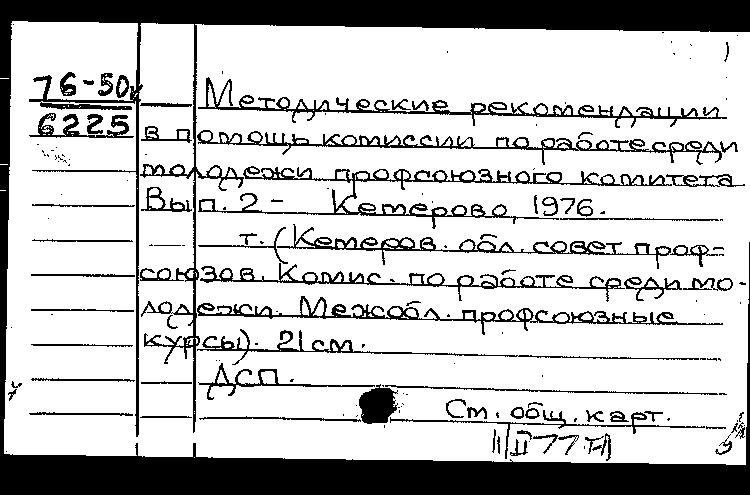 76-50к
6225
Методические рекомендации
в помощь комиссии по работе среди
молодежи профсоюзного комитета
Вып. 2 - Кемерово, 1976.
т. (Кемеров. обл. совет проф=
союзов. Комис. по работе среди мо-
лодежи. Межобл. профсоюзные
курсы). 21 см.
ДСП.
Ст. общ. карт.